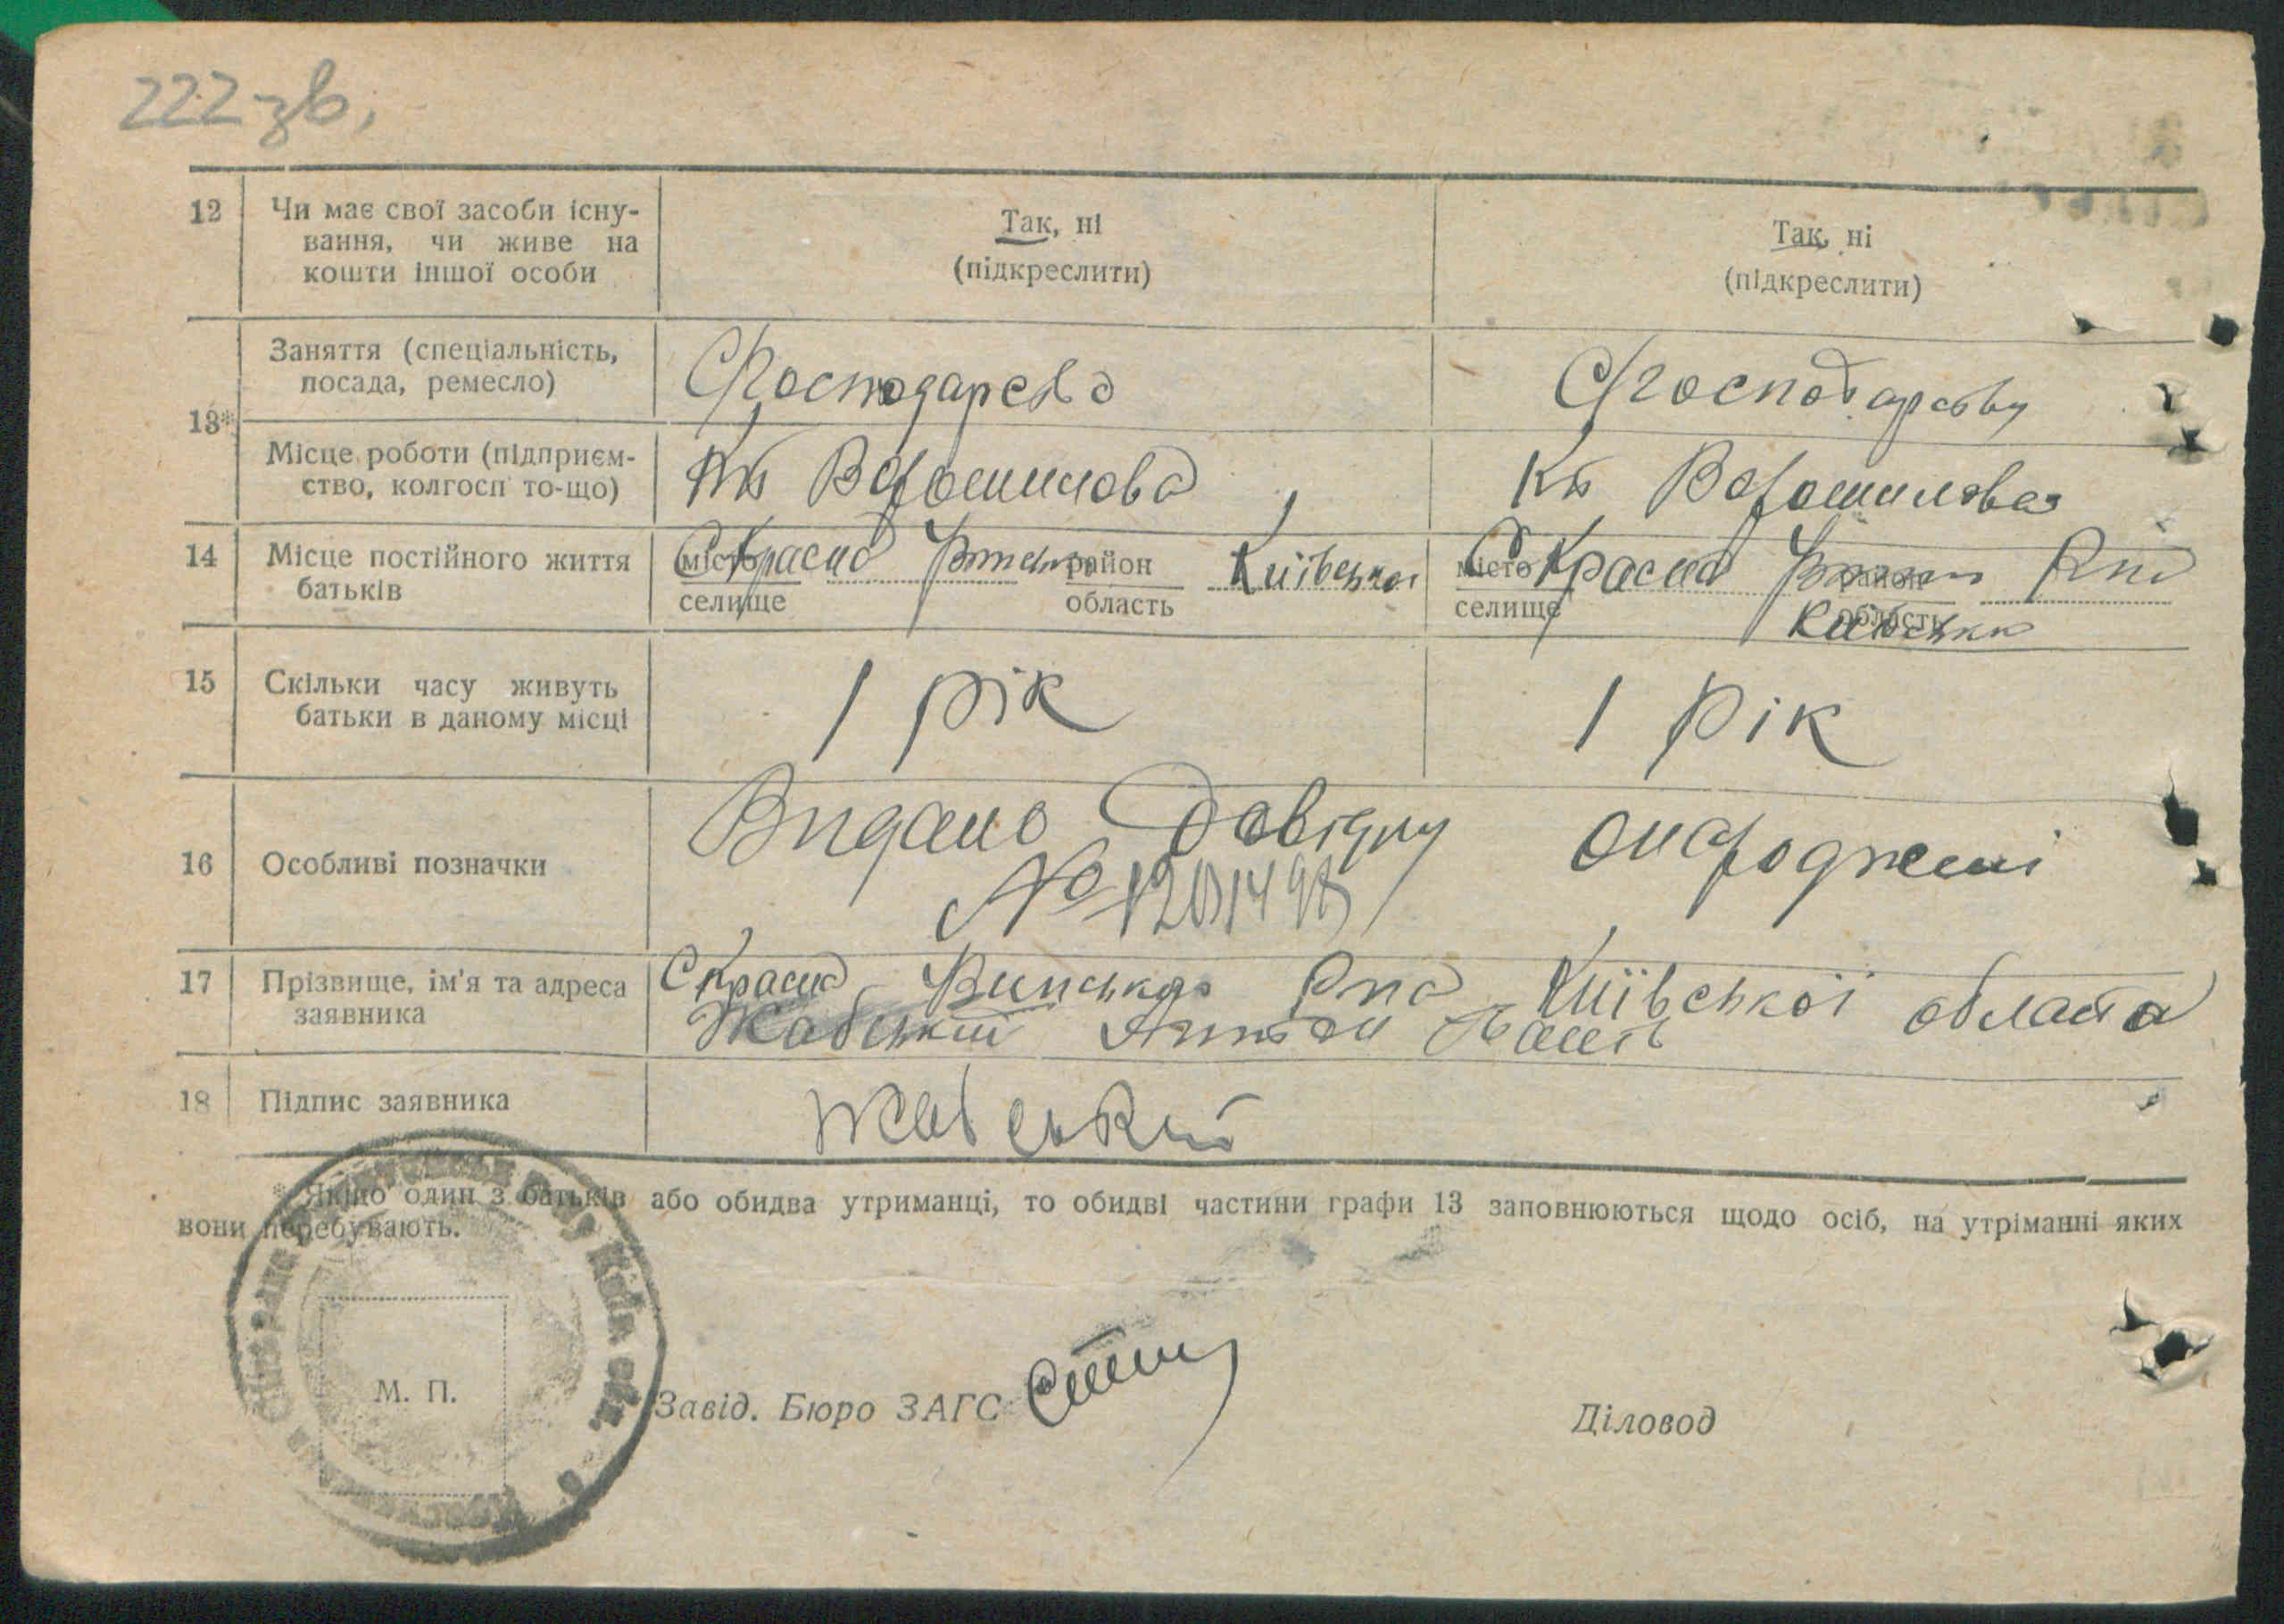 222 зв.
12 Чи має свої засоби існу-
вання, чи живе на
кошти іншої особи
Так, ні
(підкреслити)
Так, ні
(підкреслити)
13*
Заняття (спеціальність,
посада, ремесло)
Місце роботи (підприєм-
ство, колгосп то-що)
Кп Ворошилова
Кп Ворошилова
14 Місце постійного життя
батьків
місто
селище
С Красне
район
область
Київської
місто
селище
С Красне Рну
район
область
15 Скільки часу живуть
батьки в даному місці
1 рік
1 рік
16 Особливі позначки
Видано Довідку
№
17 Прізвище, ім'я та адреса
заявника
С Красне Рна Київської области
Жабський Антон
18 Підпис заявника
Жабський
* Якщо один з батьків або обидва утриманці, то обидві частини графи 13 заповнюються щодо осіб, на утріманні яких
вони перебувають.
М. П.
Завід. Бюро ЗАГС
Діловод